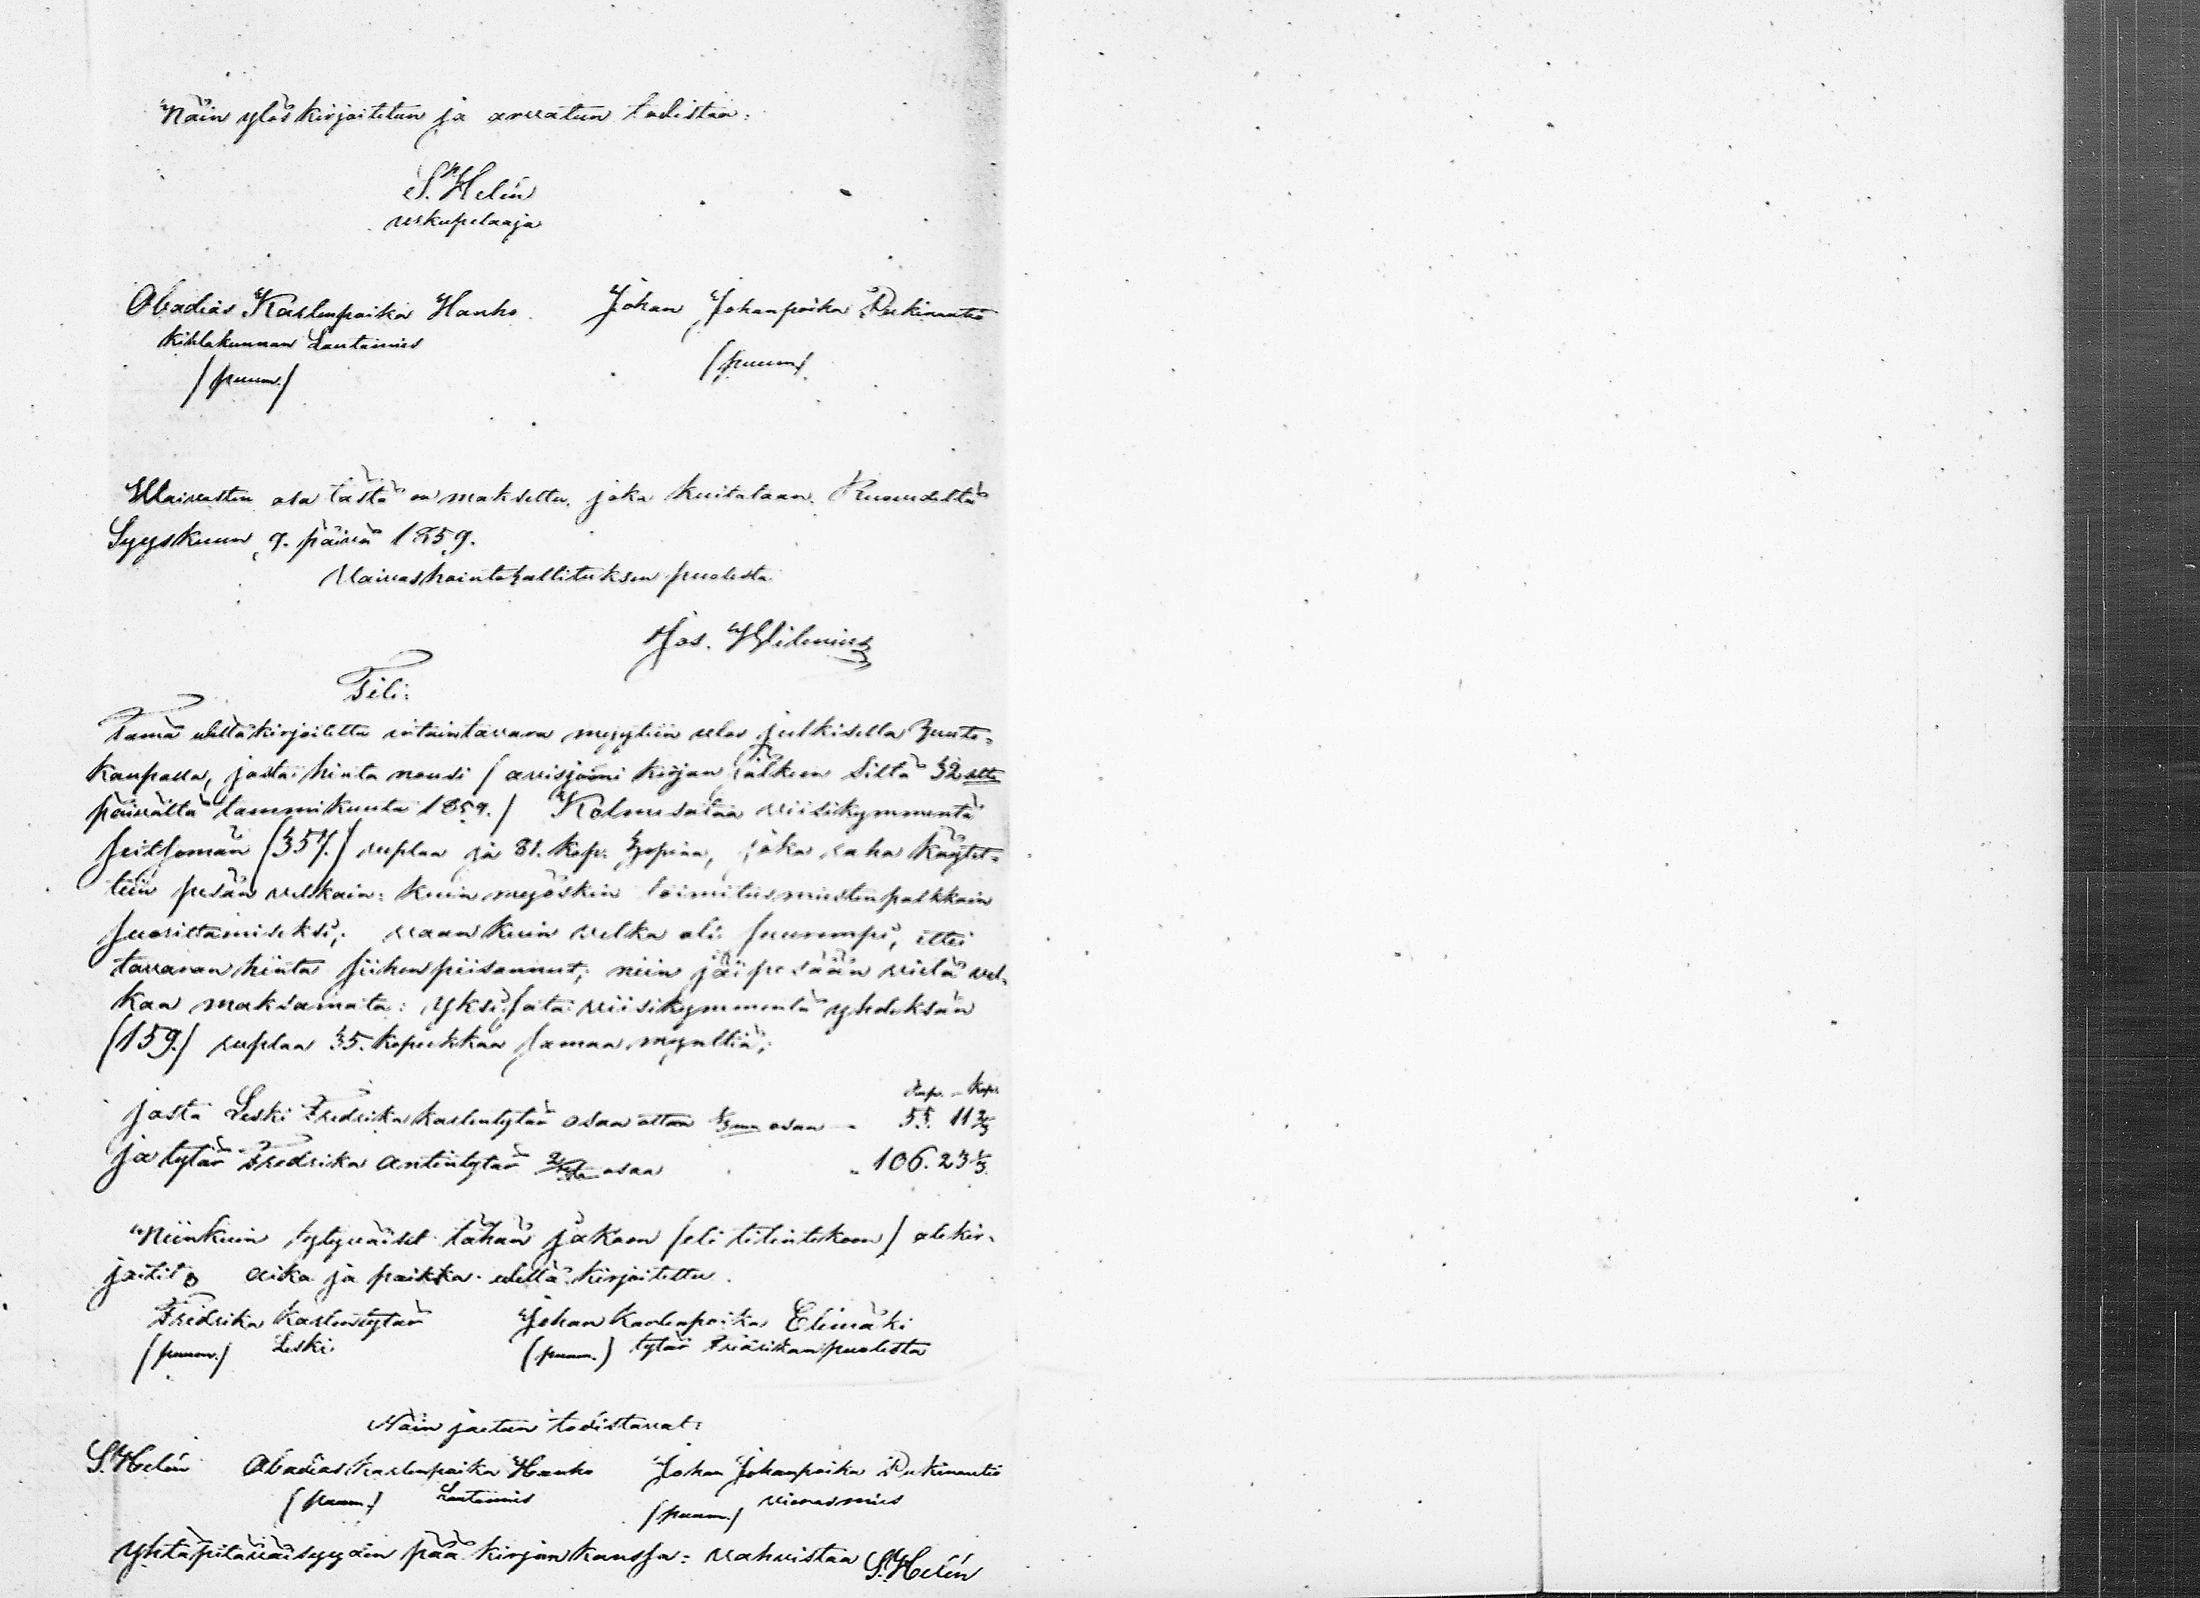 Näin ylös kirjoitetun ja arvatun todistaa:
S. Helén
veskupelaaja
Abadias Karlenpoika Hanho Johan Johanpoika
Kihlakunnan Lautamies
(puum.) (puum.)
Waivasten osa tästä on maksettu, joka kuitataan.
Syyskuun 9. päivä 1859.
Vaivashointohallituksen puolesta
Jos.
Tili:
Tämä ulettäkirjoitettu irtaintavara myytiin ulos julkisella huuto-
kaupalla, josta hinta nousi (avisjooni kirjan jälkeen siltä
päivältä tammikuuta 1859.) Kolmesataa viisikymmentä
seitsemän (357.) ruplaa ja 81. kop. hopiaa, joka raha käytet-
tiin pesän velkain: kuin myöskin toimitusmiesten palkkain
suorittamiseksi; vaan kuin velka oli suurempi, ettei
tavaran hinta siihen piisannut; niin jäi pesään vielä vel-
kaa maksamata: yksi sata viisikymmentä yhdeksän
(159.) ruplaa 35. kopeekkaa samaa mynttiä;
Rup. Kop.
josta Leski Fredrika Karlentytär osaa ottaa 1/3 osan 53. 11 2/3
ja tytär Fredrika Antintytär 2/3 osaa 106. 23 1/3.
Niinkuin tytyväiset tähän jakoon (eli tilintekoon) alekir-
joitit; aika ja paikka ulettä kirjoitettu.
Fredrika Karlentytär Johan Karlenpoika Elimäki
(puum.) Leski (puum.) tytär Fredrikan puolesta
Näin jaetun todistavat:
S. Helén Abadias Karlenpoika Hanho Johan Johanpoika
(puum.) Lautamies (puum.) vierasmies
Yhtäpitäväisyyden pää kirjan kanssa: vahvistaa S. Helén